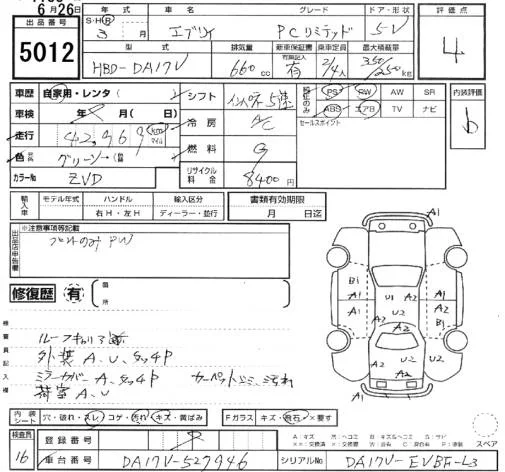 6月26日
出品番号 5012
年式 車名 グレード ドア・形状 評価点
S・H・R 3 月 エブリイ PCリミテッド 5V 4
型式 排気量 新車保証書 乗車定員 最大積載量
HBD-DA17V 660cc 有 2/4人 350/250kg
車歴 自家用・レンタ( ) シフト インパネ5速 PS PW AW SR 内装評価
車検 年 月( 日) 冷房 A/C ABS エアB TV ナビ b
走行 42,969 km マイル セールスポイント
色 グリーン 燃料 G
カラーNo ZVD リサイクル料金 8400円
輸入車 モデル年式 ハンドル 輸入区分 書類有効期限
右H・左H ディーラー・並行 月 日迄
※注意事項等記載
PW
修復歴 有 箇所
検査員記入欄
外装 A、U、タッチP
ミラーカバー A、タッチP カーペットシミ、汚れ
荷室 A、U
A1 A1
B1 A2 U1 A2 A1
A2 A2 U2 A2
U2 A2 U2
A1 A1
スペア
内装シート 穴・破れ・スレ・コゲ・汚れ・キズ・黄ばみ Fガラス キズ・飛石・×要す
検査員 16 登録番号
車台番号 DA17V-527946 シリアルNo DA17V-EVBF-L3